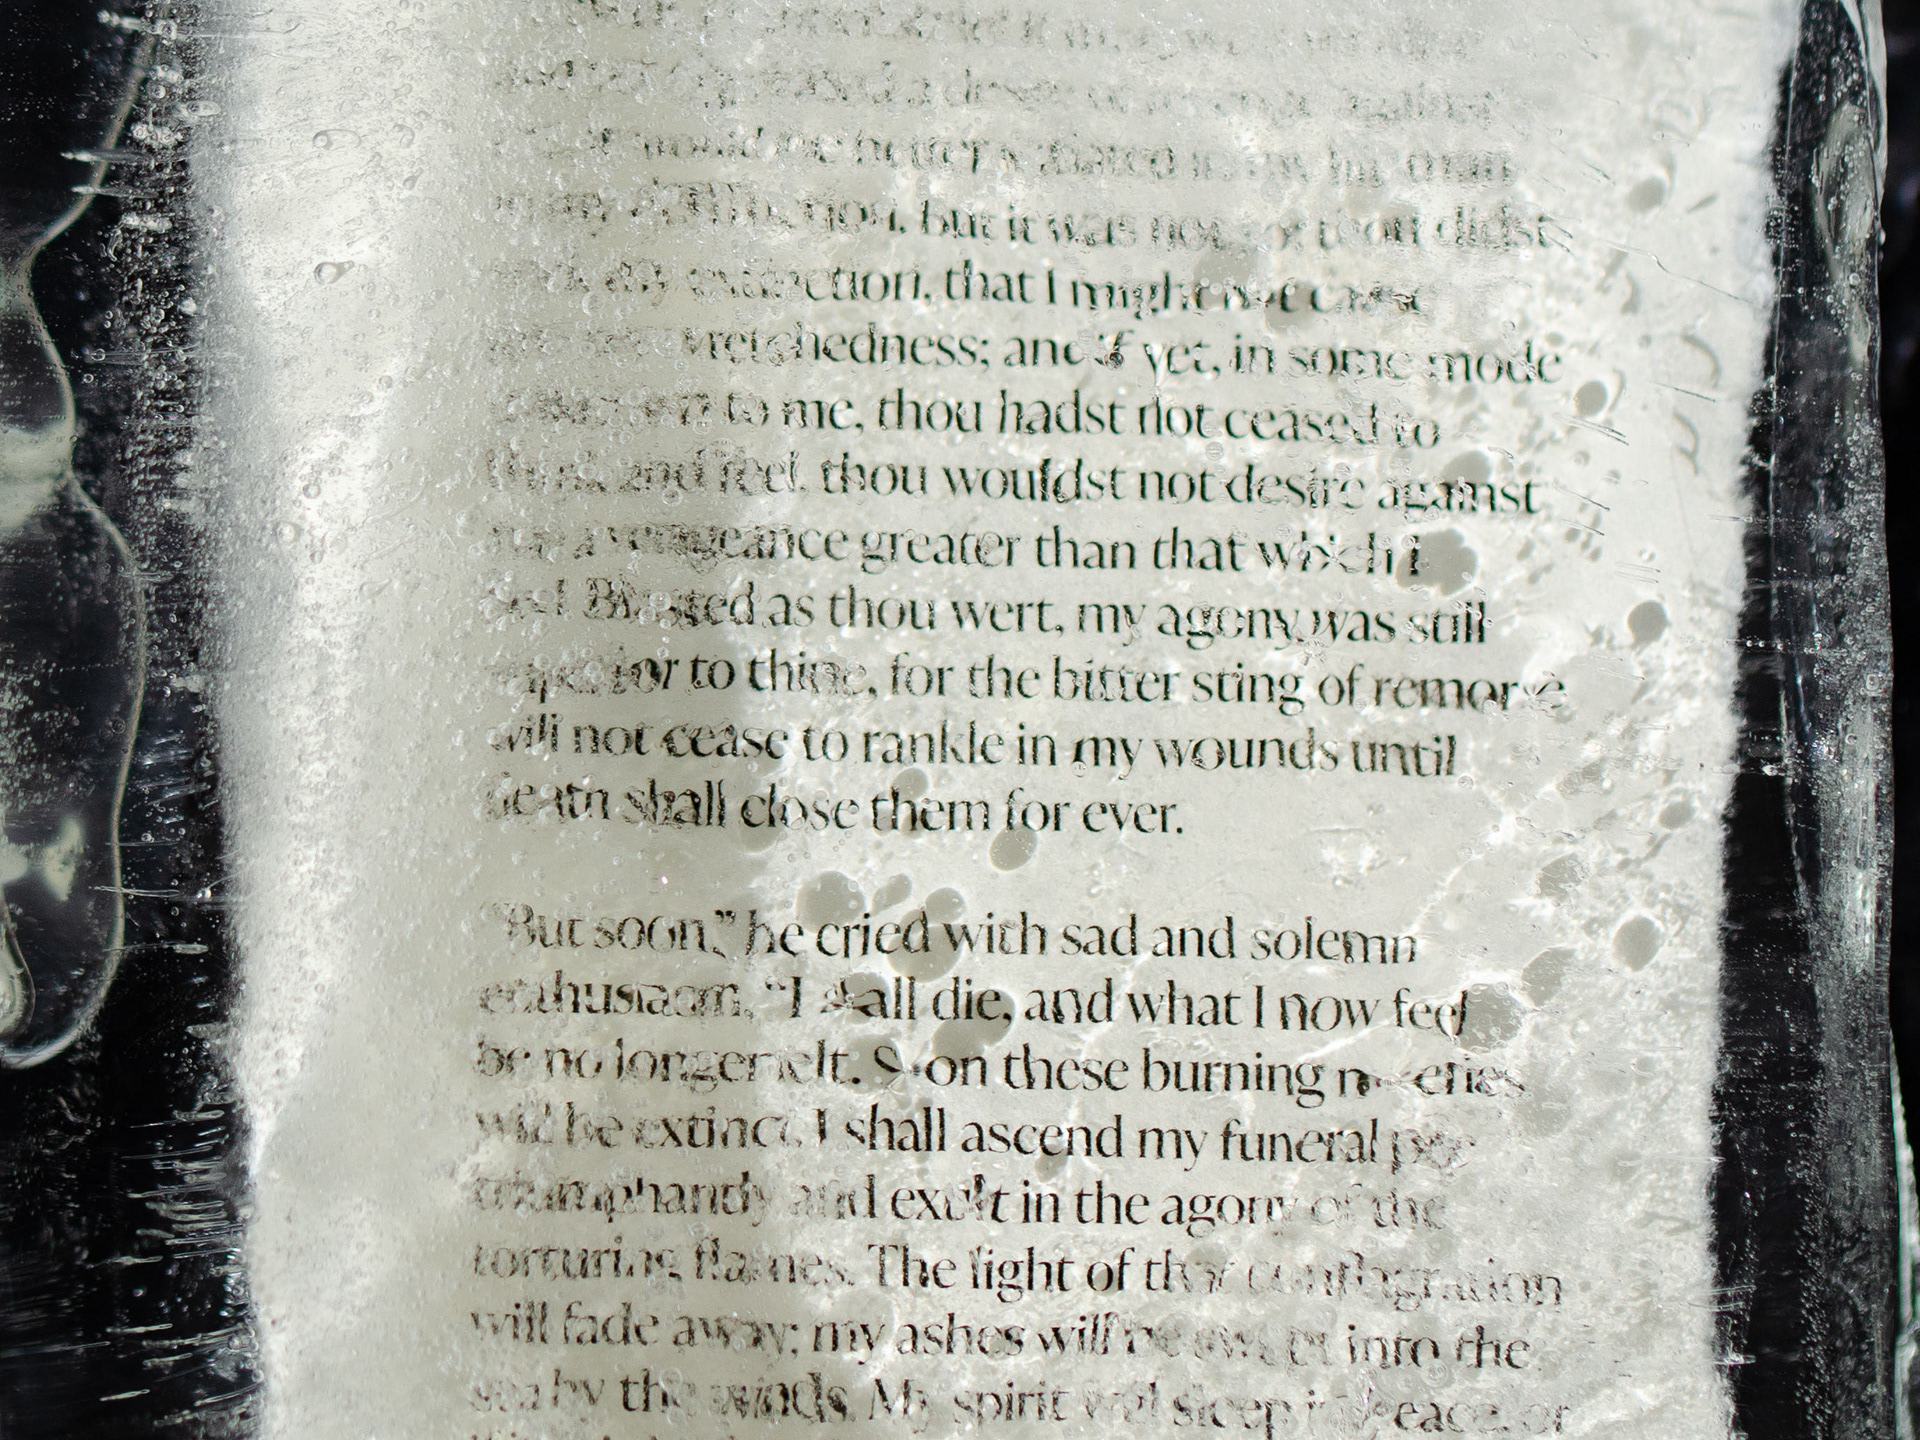 against
would be better satiated in my life than
in my destruction. But it was not so; thou didst
seek my extinction, that I might not cause
greater wretchedness; and if yet, in some mode
unknown to me, thou hadst not ceased to
think and feel, thou wouldst not desire against
me a vengeance greater than that which I
feel. Blasted as thou wert, my agony was still
superior to thine, for the bitter sting of remorse
will not cease to rankle in my wounds until
death shall close them for ever.
“But soon,” he cried with sad and solemn
enthusiasm, “I shall die, and what I now feel
be no longer felt. Soon these burning miseries
will be extinct. I shall ascend my funeral pile
triumphantly and exult in the agony of the
torturing flames. The light of that conflagration
will fade away; my ashes will be swept into the
sea by the winds. My spirit will sleep in peace, or